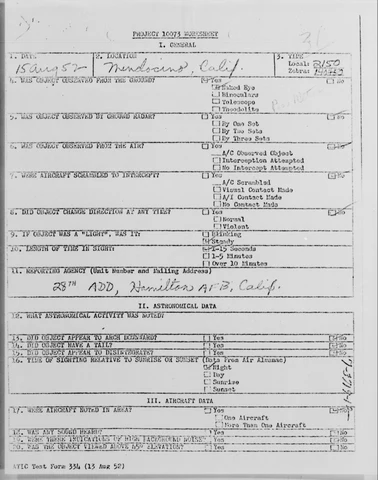 PROJECT 10073 WORKSHEET
I. GENERAL
1. DATE
15 Aug 52
2. LOCATION
Mendocino, Calif.
3. TIME
Local: 2150
Zebra:
4. WAS OBJECT OBSERVED FROM THE GROUND? Yes No
Naked Eye
Binoculars
Telescope
Theodolite
5. WAS OBJECT OBSERVED BY GROUND RADAR? Yes No
By One Set
By Two Sets
By Three Sets
6. WAS OBJECT OBSERVED FROM THE AIR? Yes No
A/C Observed Object
Interception Attempted
No Intercept Attempted
7. WERE AIRCRAFT SCRAMBLED TO INTERCEPT? Yes No
A/C Scrambled
Visual Contact Made
A/I Contact Made
No Contact Made
8. DID OBJECT CHANGE DIRECTION AT ANY TIME? Yes No
Normal
Violent
9. IF OBJECT WAS A "LIGHT", WAS IT: Blinking
Steady
10. LENGTH OF TIME IN SIGHT: 1-15 Seconds
1-5 Minutes
Over 10 Minutes
11. REPORTING AGENCY (Unit Number and Mailing Address)
28TH ADD, Hamilton AFB, Calif.
II. ASTRONOMICAL DATA
12. WHAT ASTRONOMICAL ACTIVITY WAS NOTED?
13. DID OBJECT APPEAR TO ARCH DOWNWARD? Yes No
14. DID OBJECT HAVE A TAIL? Yes No
15. DID OBJECT APPEAR TO DISINTEGRATE? Yes No
16. TIME OF SIGHTING RELATIVE TO SUNRISE OR SUNSET (Data From Air Almanac)
Night
Day
Sunrise
Sunset
III. AIRCRAFT DATA
17. WERE AIRCRAFT NOTED IN AREA? Yes No
One Aircraft
More Than One Aircraft
18. WAS ANY SOUND HEARD? Yes No
19. WERE THERE INDICATIONS OF HIGH BACKGROUND NOISE? Yes No
20. WAS THE OBJECT VIEWED ABOVE 45° ELEVATION? Yes No
ATIC Test Form 334 (13 Aug 52)